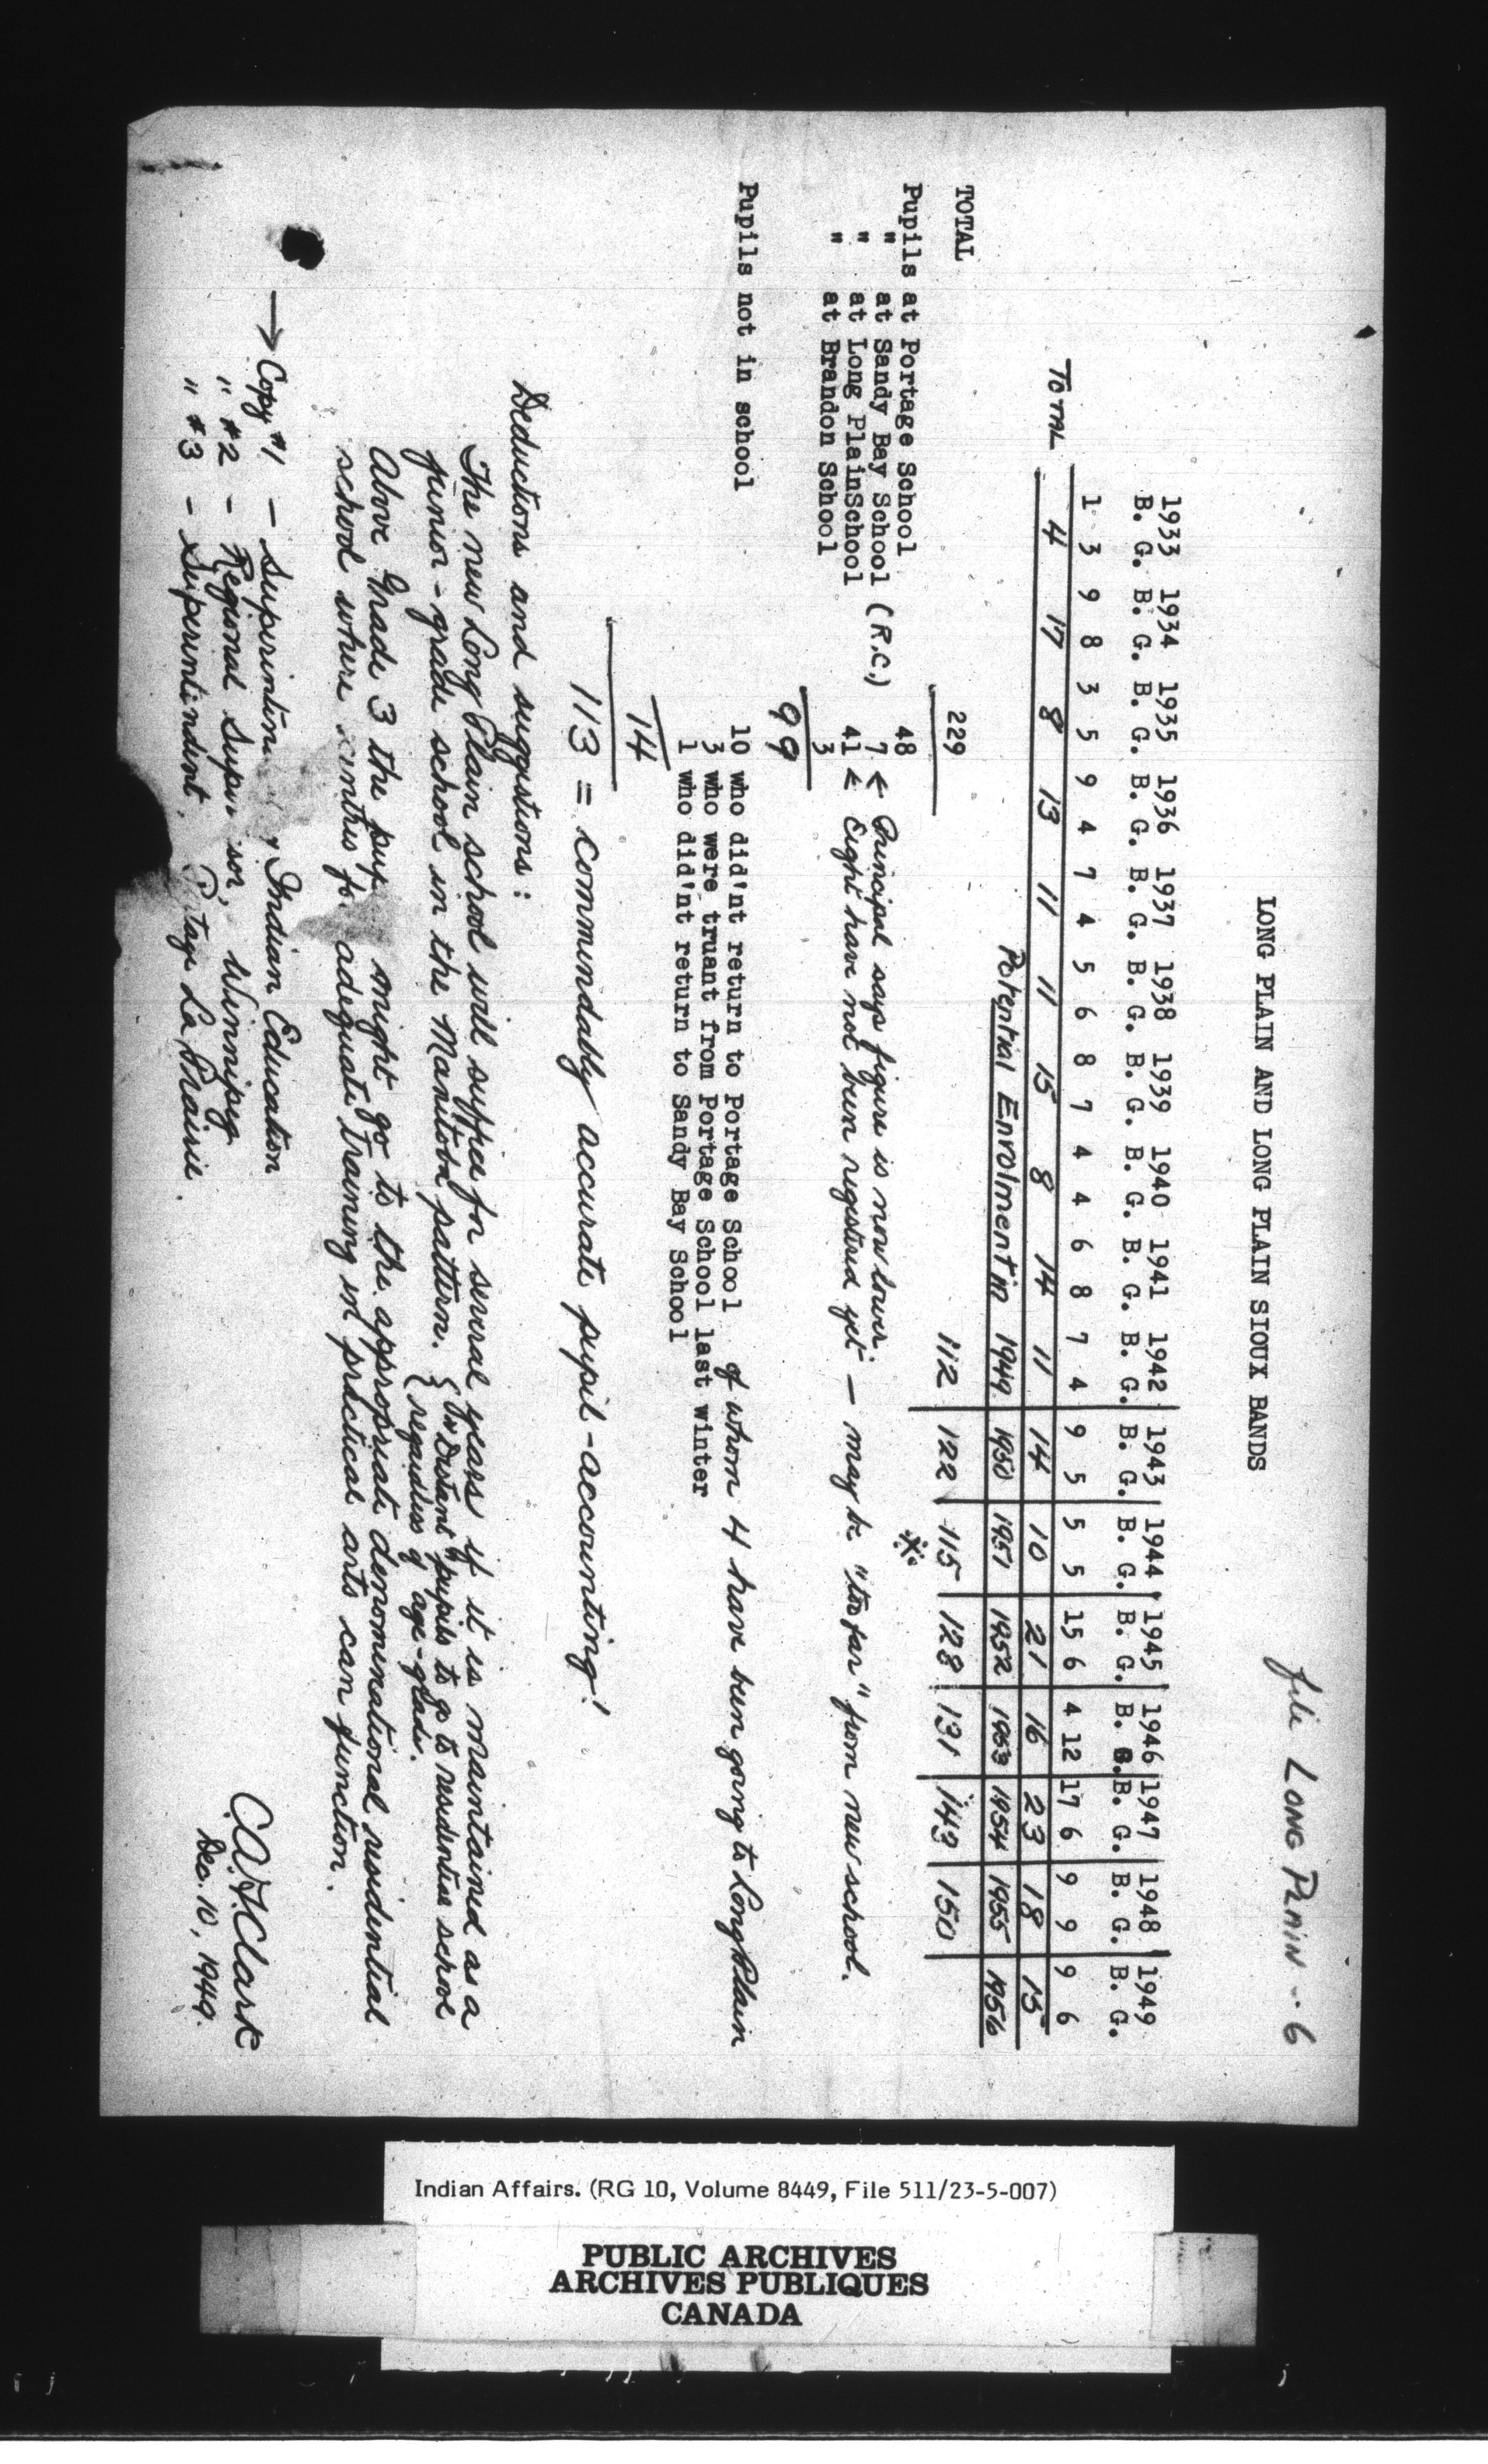 file LONG PLAIN - 6
LONG PLAIN AND LONG PLAIN SIOUX BANDS
1933 1934 1935 1936 1937 1938 1939 1940 1941 1942 1943 1944 1945 1946 1947 1948 1949
B. G. B. G. B. G. B. G. B. G. B. G. B. G. B. G. B. G. B. G. B. G. B. G. B. G. B. G. B. G. B. G. B. G.
1 3 9 8 3 5 9 4 7 4 5 6 8 7 4 4 6 8 7 4 9 5 5 5 15 6 4 12 17 6 9 9 9 6
TOTAL 4 17 8 13 11 11 15 8 14 11 14 10 21 16 23 18 15
Potential Enrolment in 1949 1950 1951 1952 1953 1954 1955 1956
TOTAL 229 112 122 115 128 131 143 150
Pupils at Portage School 48
" at Sandy Bay School (R.C.) 7 ← Principal says figure is now lower.
" at Long PlainSchool 41 ← Eight have not been registered yet — may be "too far" from new school.
" at Brandon School 3
99
Pupils not in school 10 who did'nt return to Portage School of whom 4 have been going to Long Plain
3 who were truant from Portage School last winter
1 who did'nt return to Sandy Bay School
14
113 = commendably accurate pupil-accounting!
Deductions and suggestions:
The new Long Plain school will suffice for several years if it is maintained as a
junior-grade school in the Manitoba pattern. { "Distant" pupils to go to residential school
regardless of age-grade.
Above Grade 3 the might go to the appropriate denominational residential
school where adequate training in practical arts can function.
→ Copy #1 — Indian Education
" #2 - Regional Winnipeg
" #3 - Superintendent, La Prairie.
C.A.F. Clark
Dec. 10, 1949.
Indian Affairs. (RG 10, Volume 8449, File 511/23-5-007)
PUBLIC ARCHIVES
ARCHIVES PUBLIQUES
CANADA